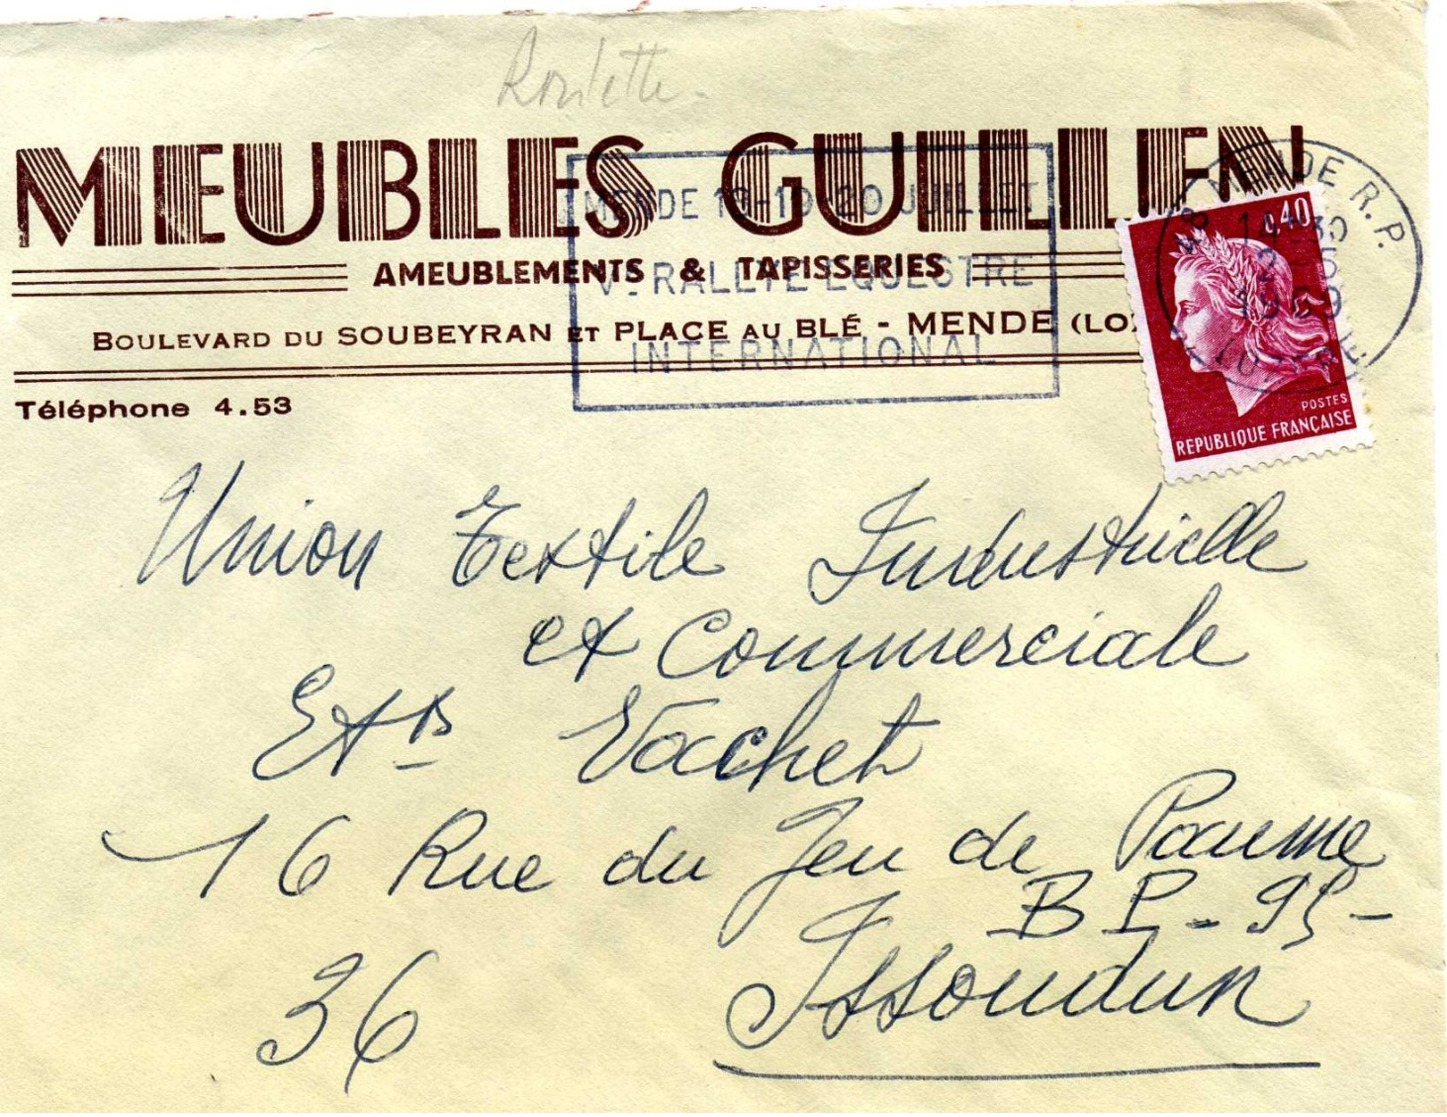 Roulette.
MEUBLES GUILLEN
MENDE 18-19-20 JUILLET
AMEUBLEMENTS & TAPISSERIES
V. RALLYE EQUESTRE
BOULEVARD DU SOUBEYRAN ET PLACE AU BLÉ - MENDE (LO
INTERNATIONAL
Téléphone 4.53
48 MENDE R.P.
14H30
1969
LOZERE
0,40
POSTES
REPUBLIQUE FRANÇAISE
Union Textile Industrielle
et Commerciale
Ets Vachet
16 Rue du Jeu de Paume
B P - 95 -
36 Issoudun